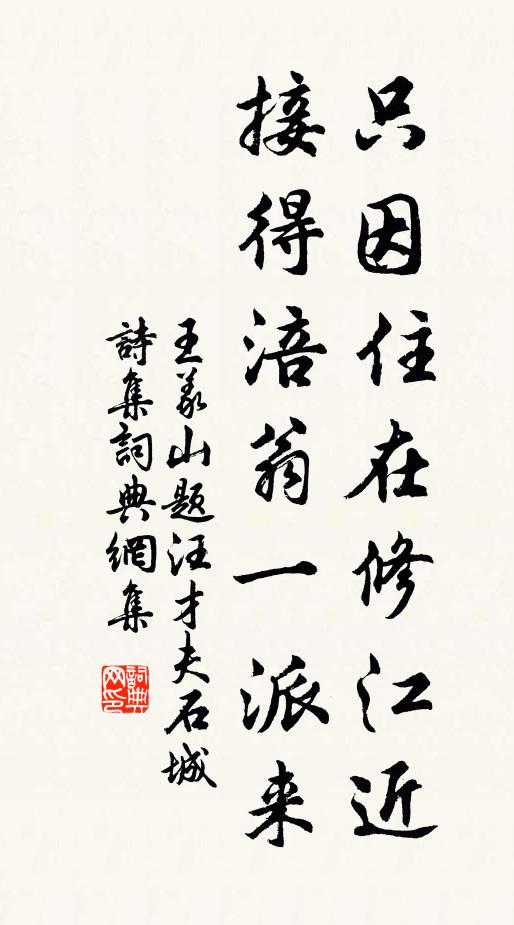 只因住在修江近
接得涪翁一派来
王义山题汪才夫石城
詩集詞典網集
詞典網印